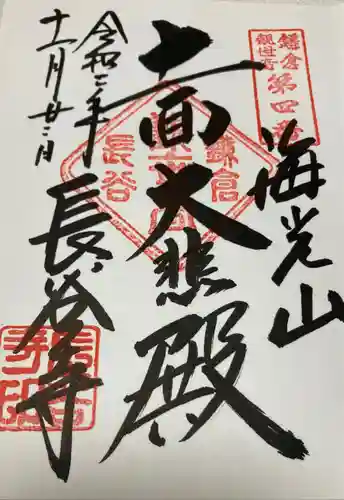 鎌倉
観世音
第四番
海光山
十一面大悲殿
鎌倉
長谷
令和三年
十一月廿三日
長谷寺